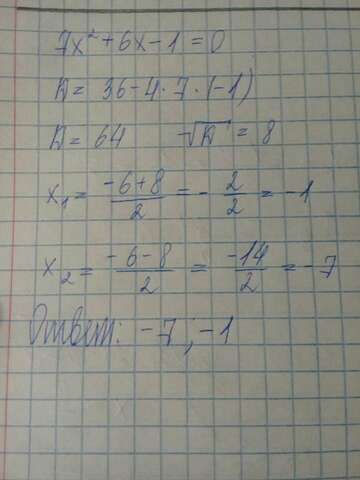 7x² + 6x - 1 = 0
D = 36 - 4 · 7 · (-1)
D = 64 √D = 8
x₁ = (-6+8)/2 = - 2/2 = -1
x₂ = (-6-8)/2 = (-14)/2 = -7
Ответ: -7 ; -1